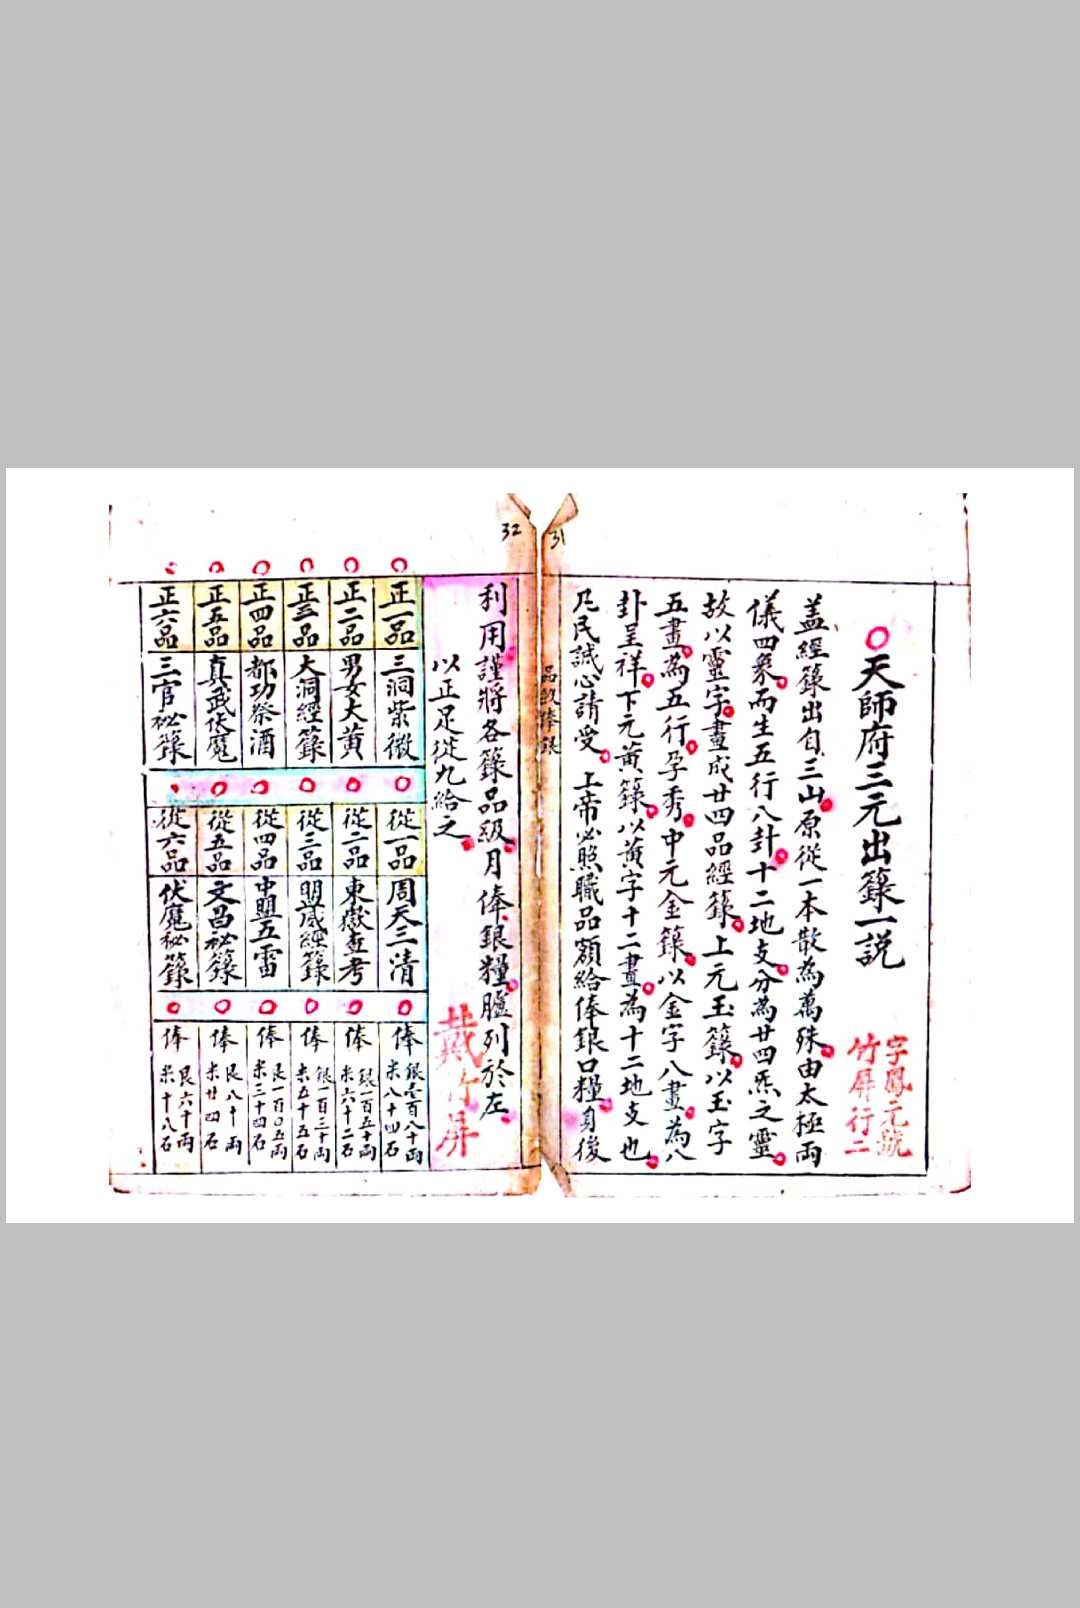 31
天師府三元出籙一説
字鳳元號
竹屏行二
盖經籙出自三山原從一本散為萬殊由太極兩
儀四象而生五行八卦十二地支分為廿四炁之靈
故以靈字畫成廿四品經籙上元玉籙以玉字
五畫為五行孕秀中元金籙以金字八畫為八
卦呈祥下元黃籙以黃字十二畫為十二地支也
凡民誠心請受上帝必照職品額給俸銀口糧身後
品級俸銀
32
利用謹將各籙品級月俸銀糧臚列於左
以正足從九給之
戴竹屏
正一品 三洞紫微
正二品 男女大黃
正三品 大洞經籙
正四品 都功祭酒
正五品 真武伏魔
正六品 三官祕籙
從一品 周天三清
從二品 東嶽查考
從三品 盟威經籙
從四品 中盟五雷
從五品 文昌祕籙
從六品 伏魔祕籙
俸 銀壹百八十兩 米八十四石
俸 銀一百五十兩 米六十二石
俸 銀一百三十兩 米五十五石
俸 艮一百〇五兩 米三十四石
俸 艮八十兩 米廿四石
俸 艮六十兩 米十八石